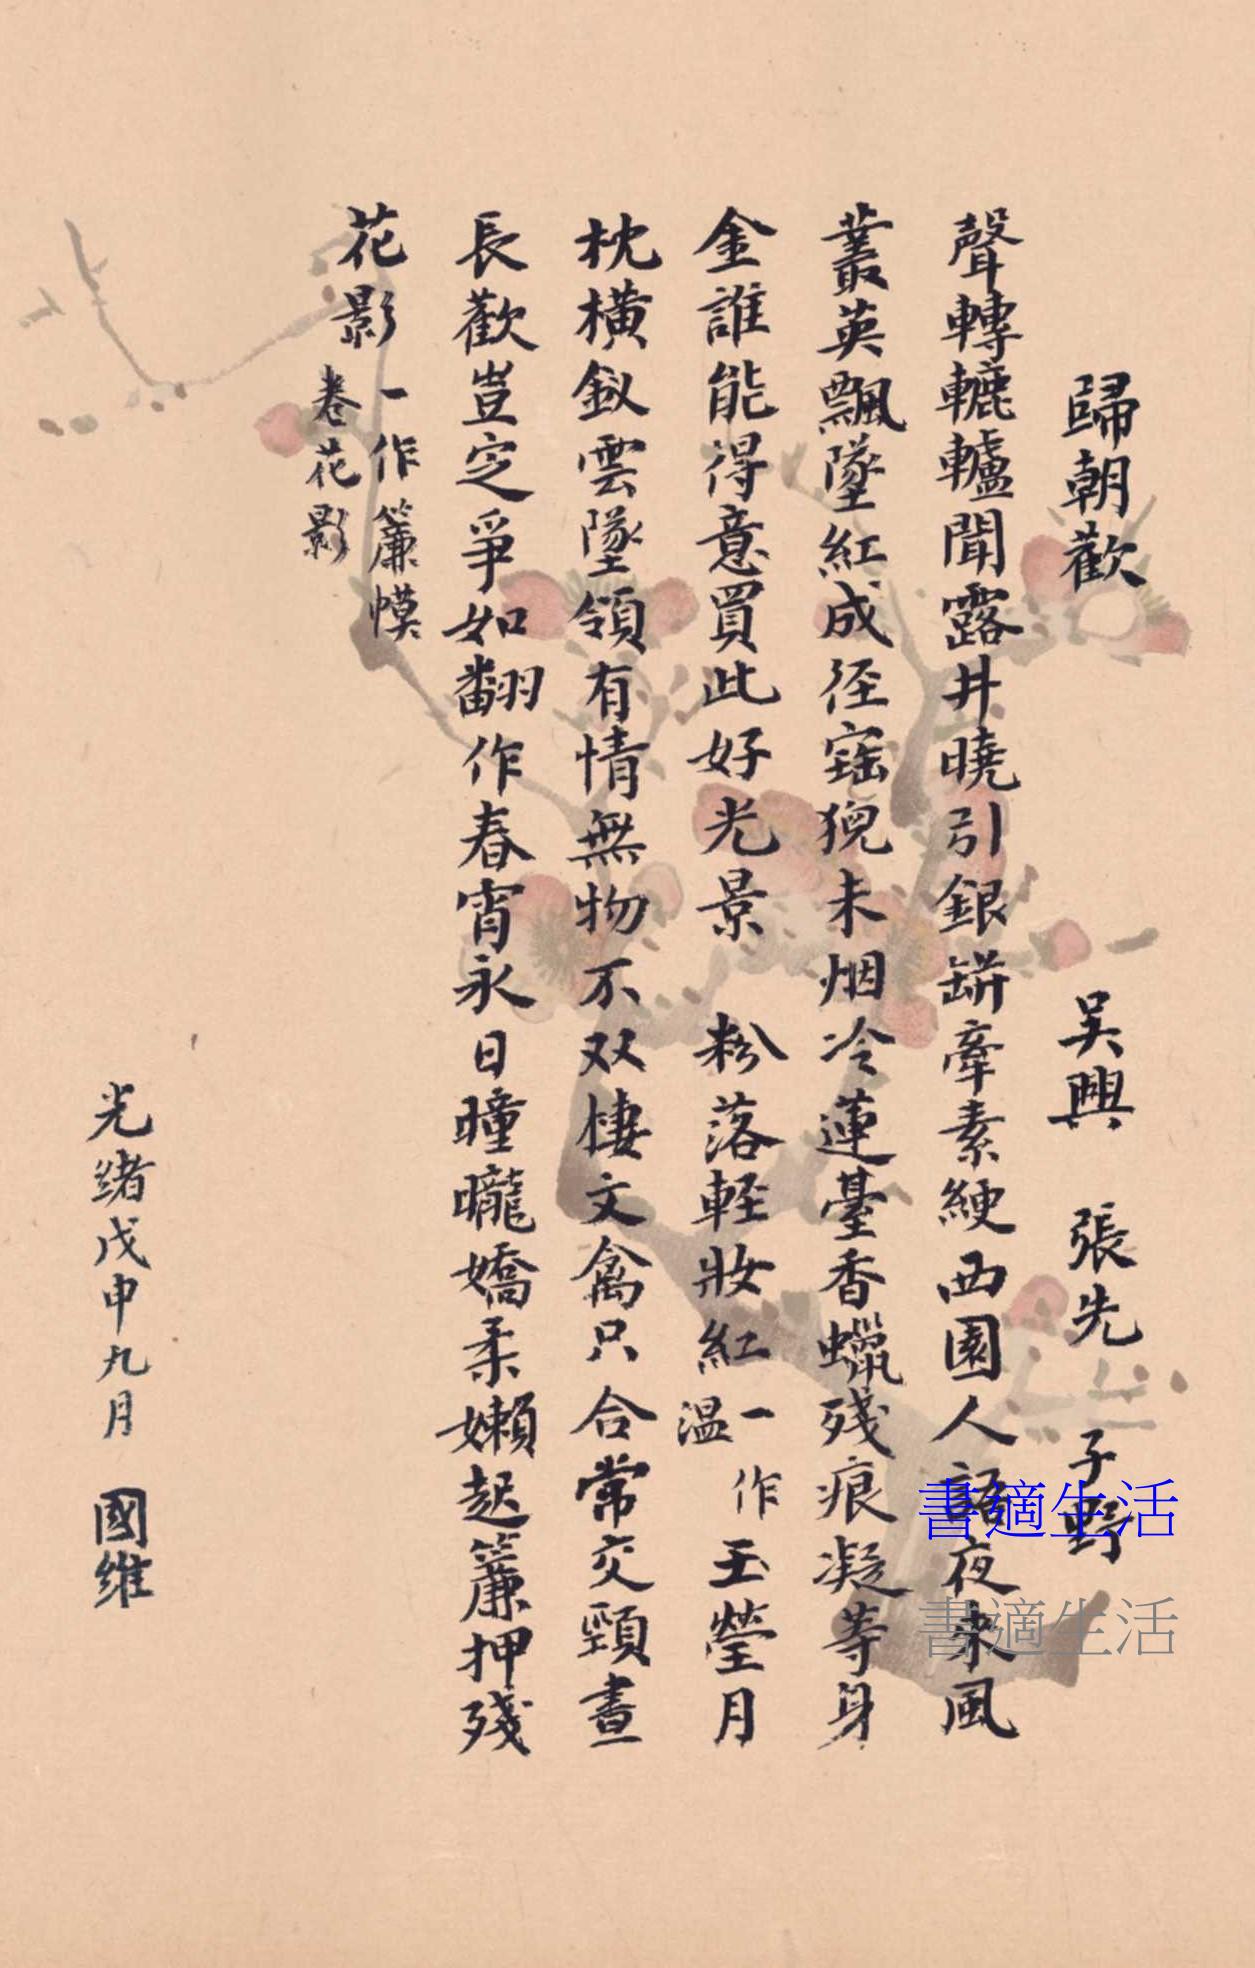 歸朝歡　吳興　張先　子野
聲轉轆轤聞露井曉引銀缾牽素綆西園人語夜來風
叢英飄墜紅成徑寶猊未烟冷蓮臺香蠟殘痕凝等身
金誰能得意買此好光景　粉落輕妝紅一作溫玉瑩月
枕橫釵雲墜領有情無物不双棲文禽只合常交頸晝
長歡豈定爭如翻作春宵永日曈曨嬌柔嬾起簾押殘
花影一作簾幙卷花影
光緒戊申九月　國維
書適生活
書適生活